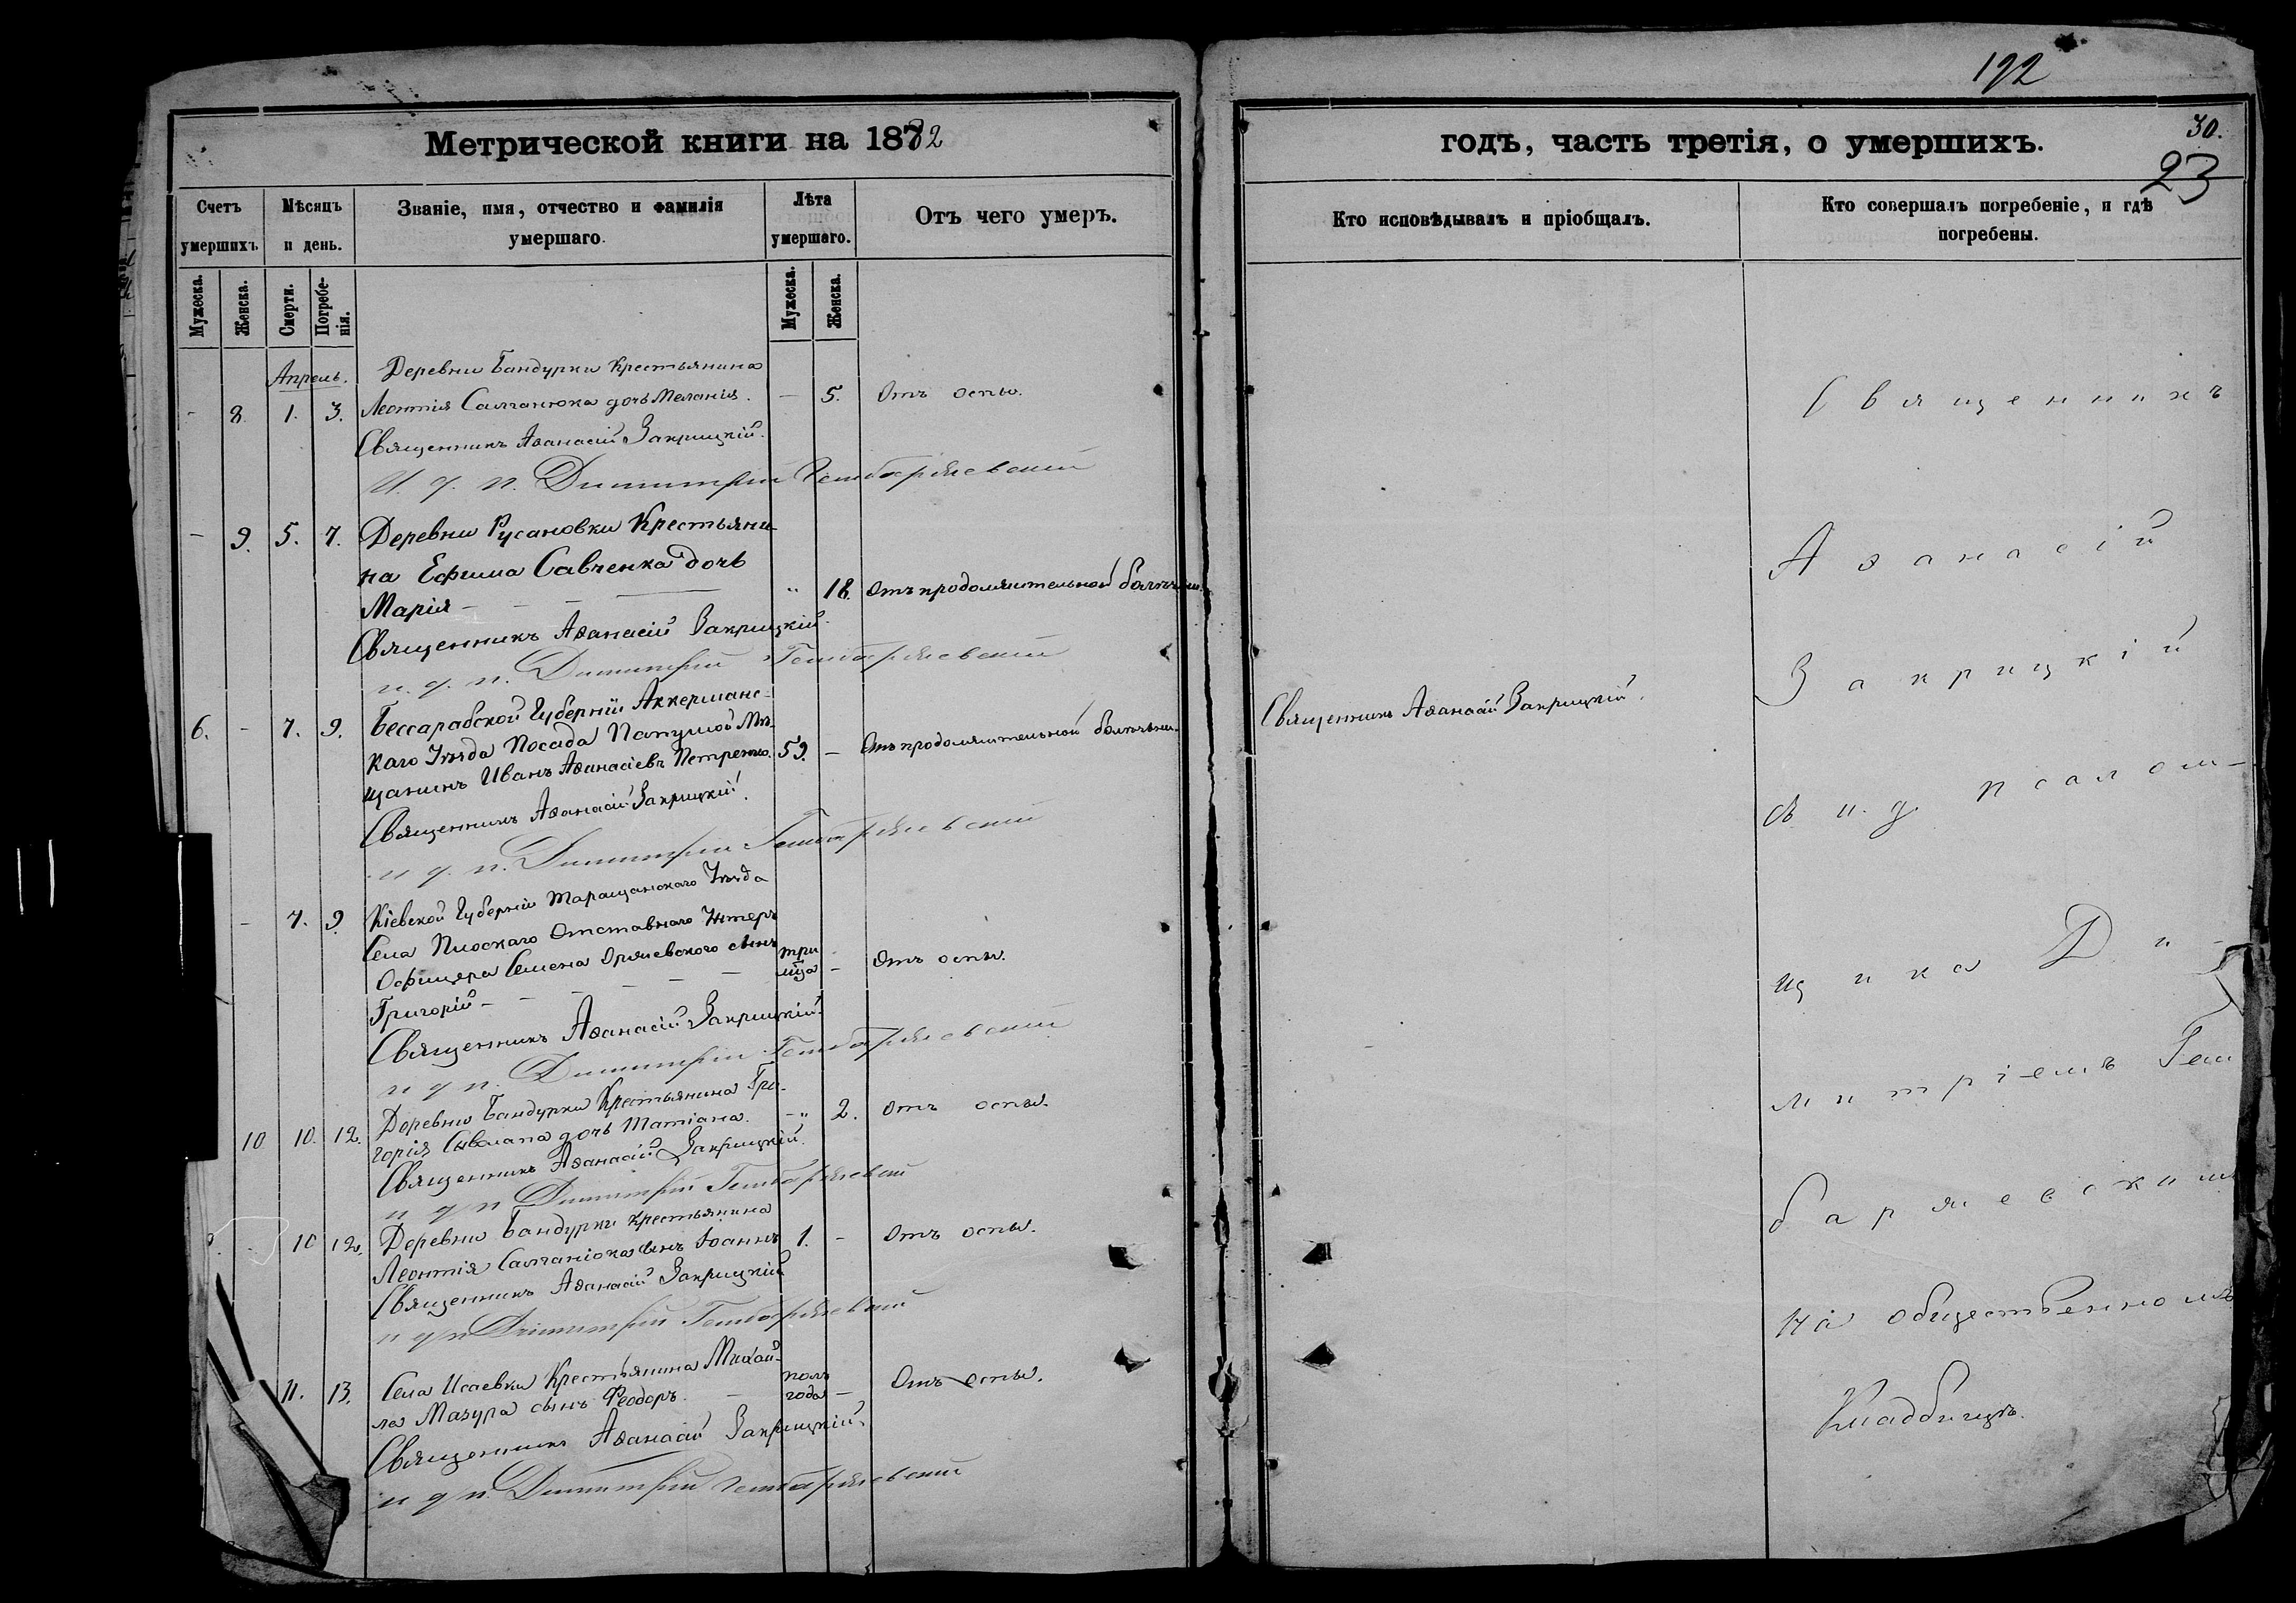 192
Метрической книги на 1882
годъ, часть третія, о умершихъ.
30.
23
Счетъ умершихъ
Мѣсяцъ и день.
Званіе, имя, отчество и фамилія умершаго.
Лѣта умершаго.
Отъ чего умеръ.
Кто исповѣдывалъ и пріобщалъ.
Кто совершалъ погребеніе, и гдѣ погребены.
Мужеска.
Женска.
Смерти.
Погребе-
нія.
Мужеска.
Женска.
Апрель. Деревни Бандурки Крестьянина
- 8 1. 3. Леонтія Салганюка дочь Меланія. — 5. Отъ оспы.
Священникъ Аѳанасій Закрицкій.
И. д. п. Димитрій
- 9. 5. 7. Деревни Русановки Крестьяни-
на Ефима Савченка дочь
Марія - - - „ 18. Отъ продолжительной болѣзни.
Священникъ Аѳанасій Закрицкій.
и. д. п. Димитрій
6. - 7. 9. Бессарабской Губерніи Аккерманс-
каго Уѣзда Посада Папушой Мѣ-
щанинъ Иванъ Аѳанасіевъ Петренко. 59. — Отъ продолжительной болѣзни.
Священникъ Аѳанасій Закрицкій.
и д. п. Димитрій
- 7. 9. Кіевской Губерніи Таращанскаго Уѣзда
Села Плоскаго Отставнаго Унтеръ
Офицера Семена Оржевского сынъ три
мѣца - Отъ оспы.
Григорій - - - - - -
Священникъ Аѳанасій Закрицкій.
и д п. Димитрій
Деревни Бандурки Крестьянина Гри-
10 10. 12. горія дочь Татіана. - „ 2. Отъ оспы.
Священникъ Аѳанасій Закрицкій.
и д п Димитрій
Деревни Бандурки Крестьянина
- 10 12. Леонтія Салганіока сынъ Іоаннъ 1. - Отъ оспы.
Священникъ Аѳанасій Закрицкій
и д п Димитрій
Села Исаевки Крестьянина Михай-
11. 13. ла Мазура сынъ Ѳеодоръ. — полъ
года — Отъ оспы.
Священникъ Аѳанасій Закрицкій.
и д п. Димитрій
Священникъ Аѳанасій Закрицкій.
Священникъ
Аѳанасій
Закрицкій
съ и. д псалом-
щика Ди-
митріемъ Гем
баржевскимъ
на общественномъ
Кладбищѣ.